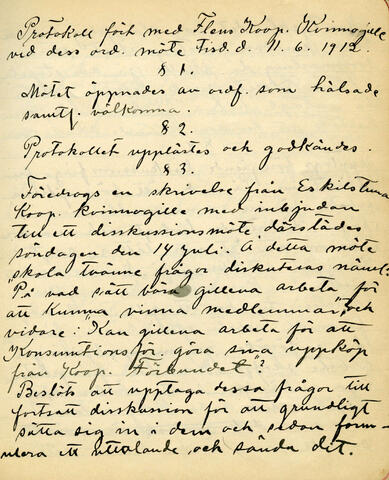 Protokoll fört med Flens Koop. Kvinnogille
vid dess ord. möte Tisd. d. 11. 6. 1912.
§ 1.
Mötet öppnades av ordf. som hälsade
samtl. välkomna.
§ 2.
Protokollet upplästes och godkändes.
§ 3.
Föredrogs en skrivelse från Eskilstuna
Koop. kvinnogille med inbjudan
till ett disskussionsmöte därstädes
söndagen den 14 juli. Å detta möte
skola tvänne frågor diskuteras nämel:
"På vad sätt böra gillena arbeta för
att kunna vinna medlemmar", och
vidare: Kan gillena arbeta för att
Konsumtionsför. göra sina uppköp
från Koop. Förbundet"?
Beslöts att upptaga dessa frågor till
fortsatt disskussion för att grundligt
sätta sig in i dem och sedan form-
ulera ett uttalande och sända dit.